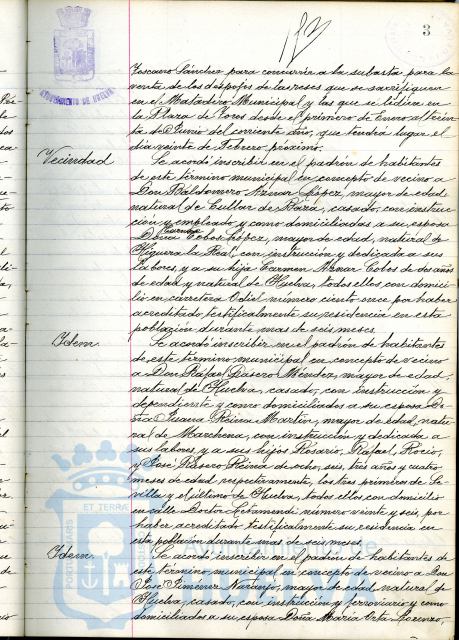 3
AYUNTAMIENTO DE HUELVA
Toscano Sánchez para concurrir a la subasta para la
venta de los despojos de las reses que se sacrifiquen
en el Matadero Municipal y las que se lidien en
la Plaza de Toros desde el primero de Enero al trein
ta de Junio del corriente año, que tendrá lugar el
día veinte de Febrero próximo.
Vecindad
Se acordó inscribir en el padrón de habitantes
de este término municipal en concepto de vecino a
Don Baldomero Aznar López, mayor de edad
natural de Cullar de Baza, casado, con instruc-
ción y empleado y como domiciliadas a su esposa
Doña Carmen Cobos López, mayor de edad, natural de
Higuera la Real, con instrucción y dedicada a sus
labores, y a su hija Carmen Aznar Cobos de dos años
de edad y natural de Huelva, todos ellos con domici-
lio en carretera Odiel número ciento once por haber
acreditado testificalmente su residencia en esta
población durante mas de seis meses.
Idem.
Se acordó inscribir en el padrón de habitantes
de este término municipal en concepto de vecino
a Don Rafael Pasero Méndez, mayor de edad,
natural de Huelva, casado, con instrucción y
dependiente y como domiciliados a su esposa Do
ña Juana Reina Martín, mayor de edad, natu
ral de Marchena, con instrucción y dedicada a
sus labores y a sus hijos Rosario, Rafael, Rocio,
y José Pasero Reina de ocho, seis, tres años y cuatro
meses de edad, respectivamente, los tres primeros de Se
villa y el último de Huelva, todos ellos con domicilio
en calle Doctor número veinte y seis, por
haber acreditado testificalmente su residencia en
esta población durante mas de seis meses.
Idem.
Se acordó inscribir en el padrón de habitantes de
este término municipal en concepto de vecino a Don
José Jiménez Naranjo, mayor de edad natural de
Huelva, casado, con instrucción y ferroviario y como
domiciliados a su esposa Doña María Orta Lorenzo,
ET TERRA